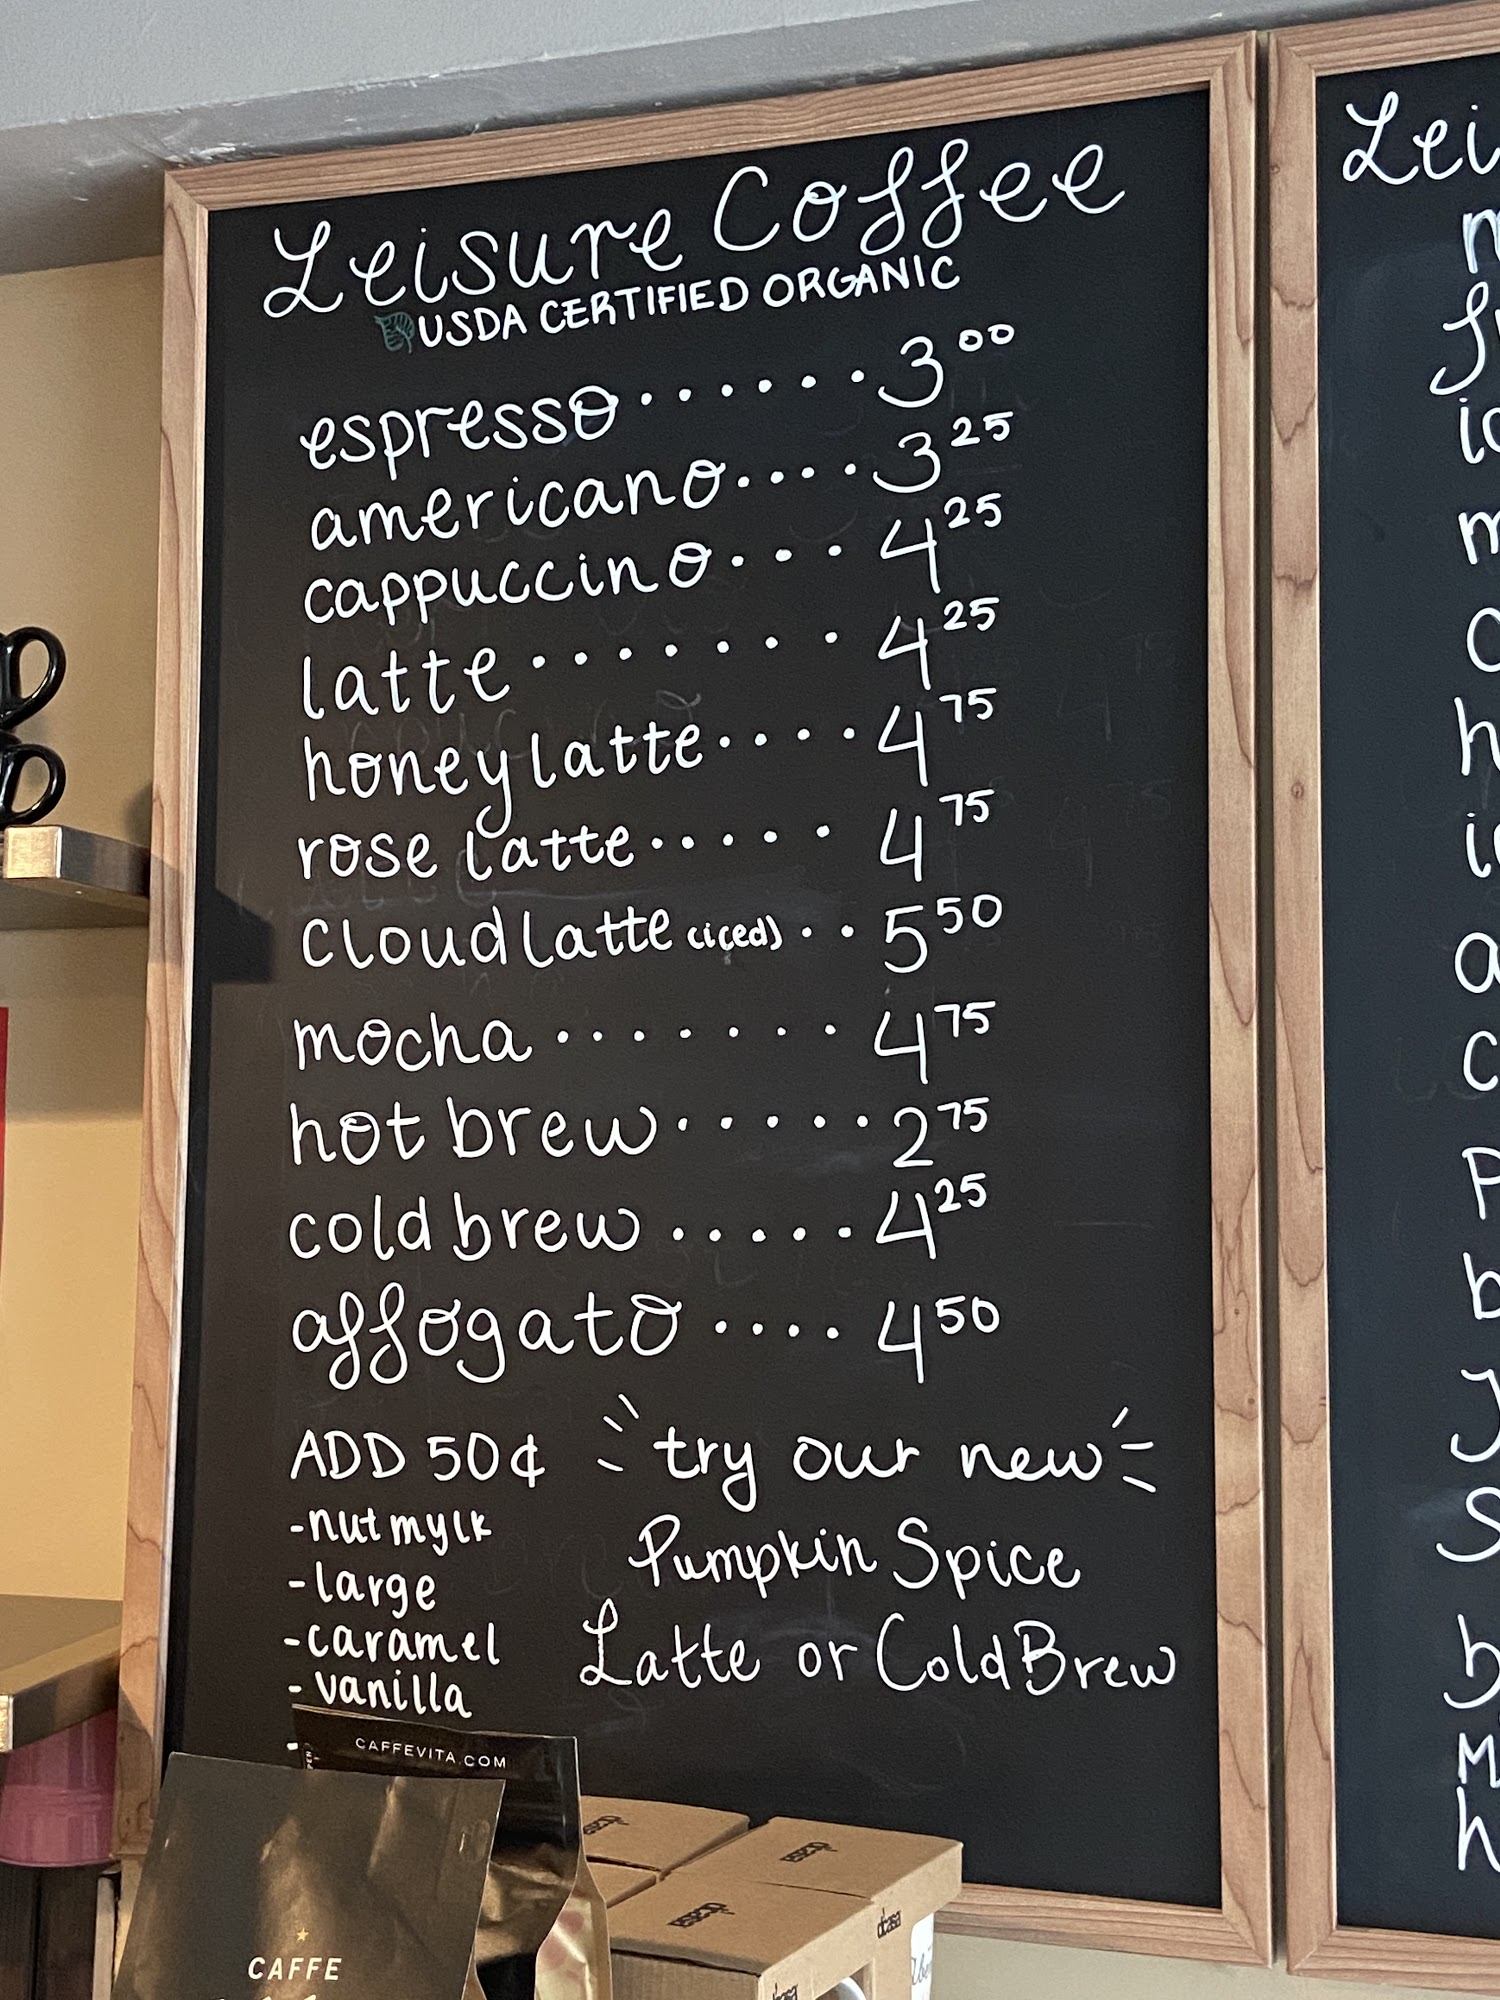 Leisure Coffee
USDA CERTIFIED ORGANIC
espresso......3 00
americano....3 25
cappuccino...4 25
latte.......4 25
honey latte....4 75
rose latte.....4 75
cloud latte (iced)..5 50
mocha.......4 75
hot brew.....2 75
cold brew.....4 25
affogato....4 50
ADD 50¢
-nut mylk
-large
-caramel
-vanilla
-
try our new
Pumpkin Spice
Latte or Cold Brew
CAFFEVITA.COM
CAFFE
d'casa